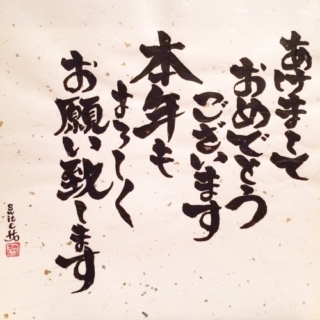 あけまして
おめでとう
ございます
本年も
よろしく
お願い致します